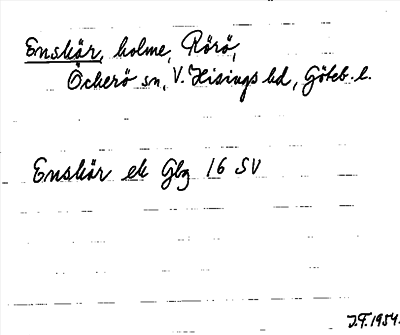 Enskär, holme, Rörö,
Öckerö sn, V. Hisings hd, Göteb. l.
Enskär ek Gbg 16 SV
J.F. 1954.